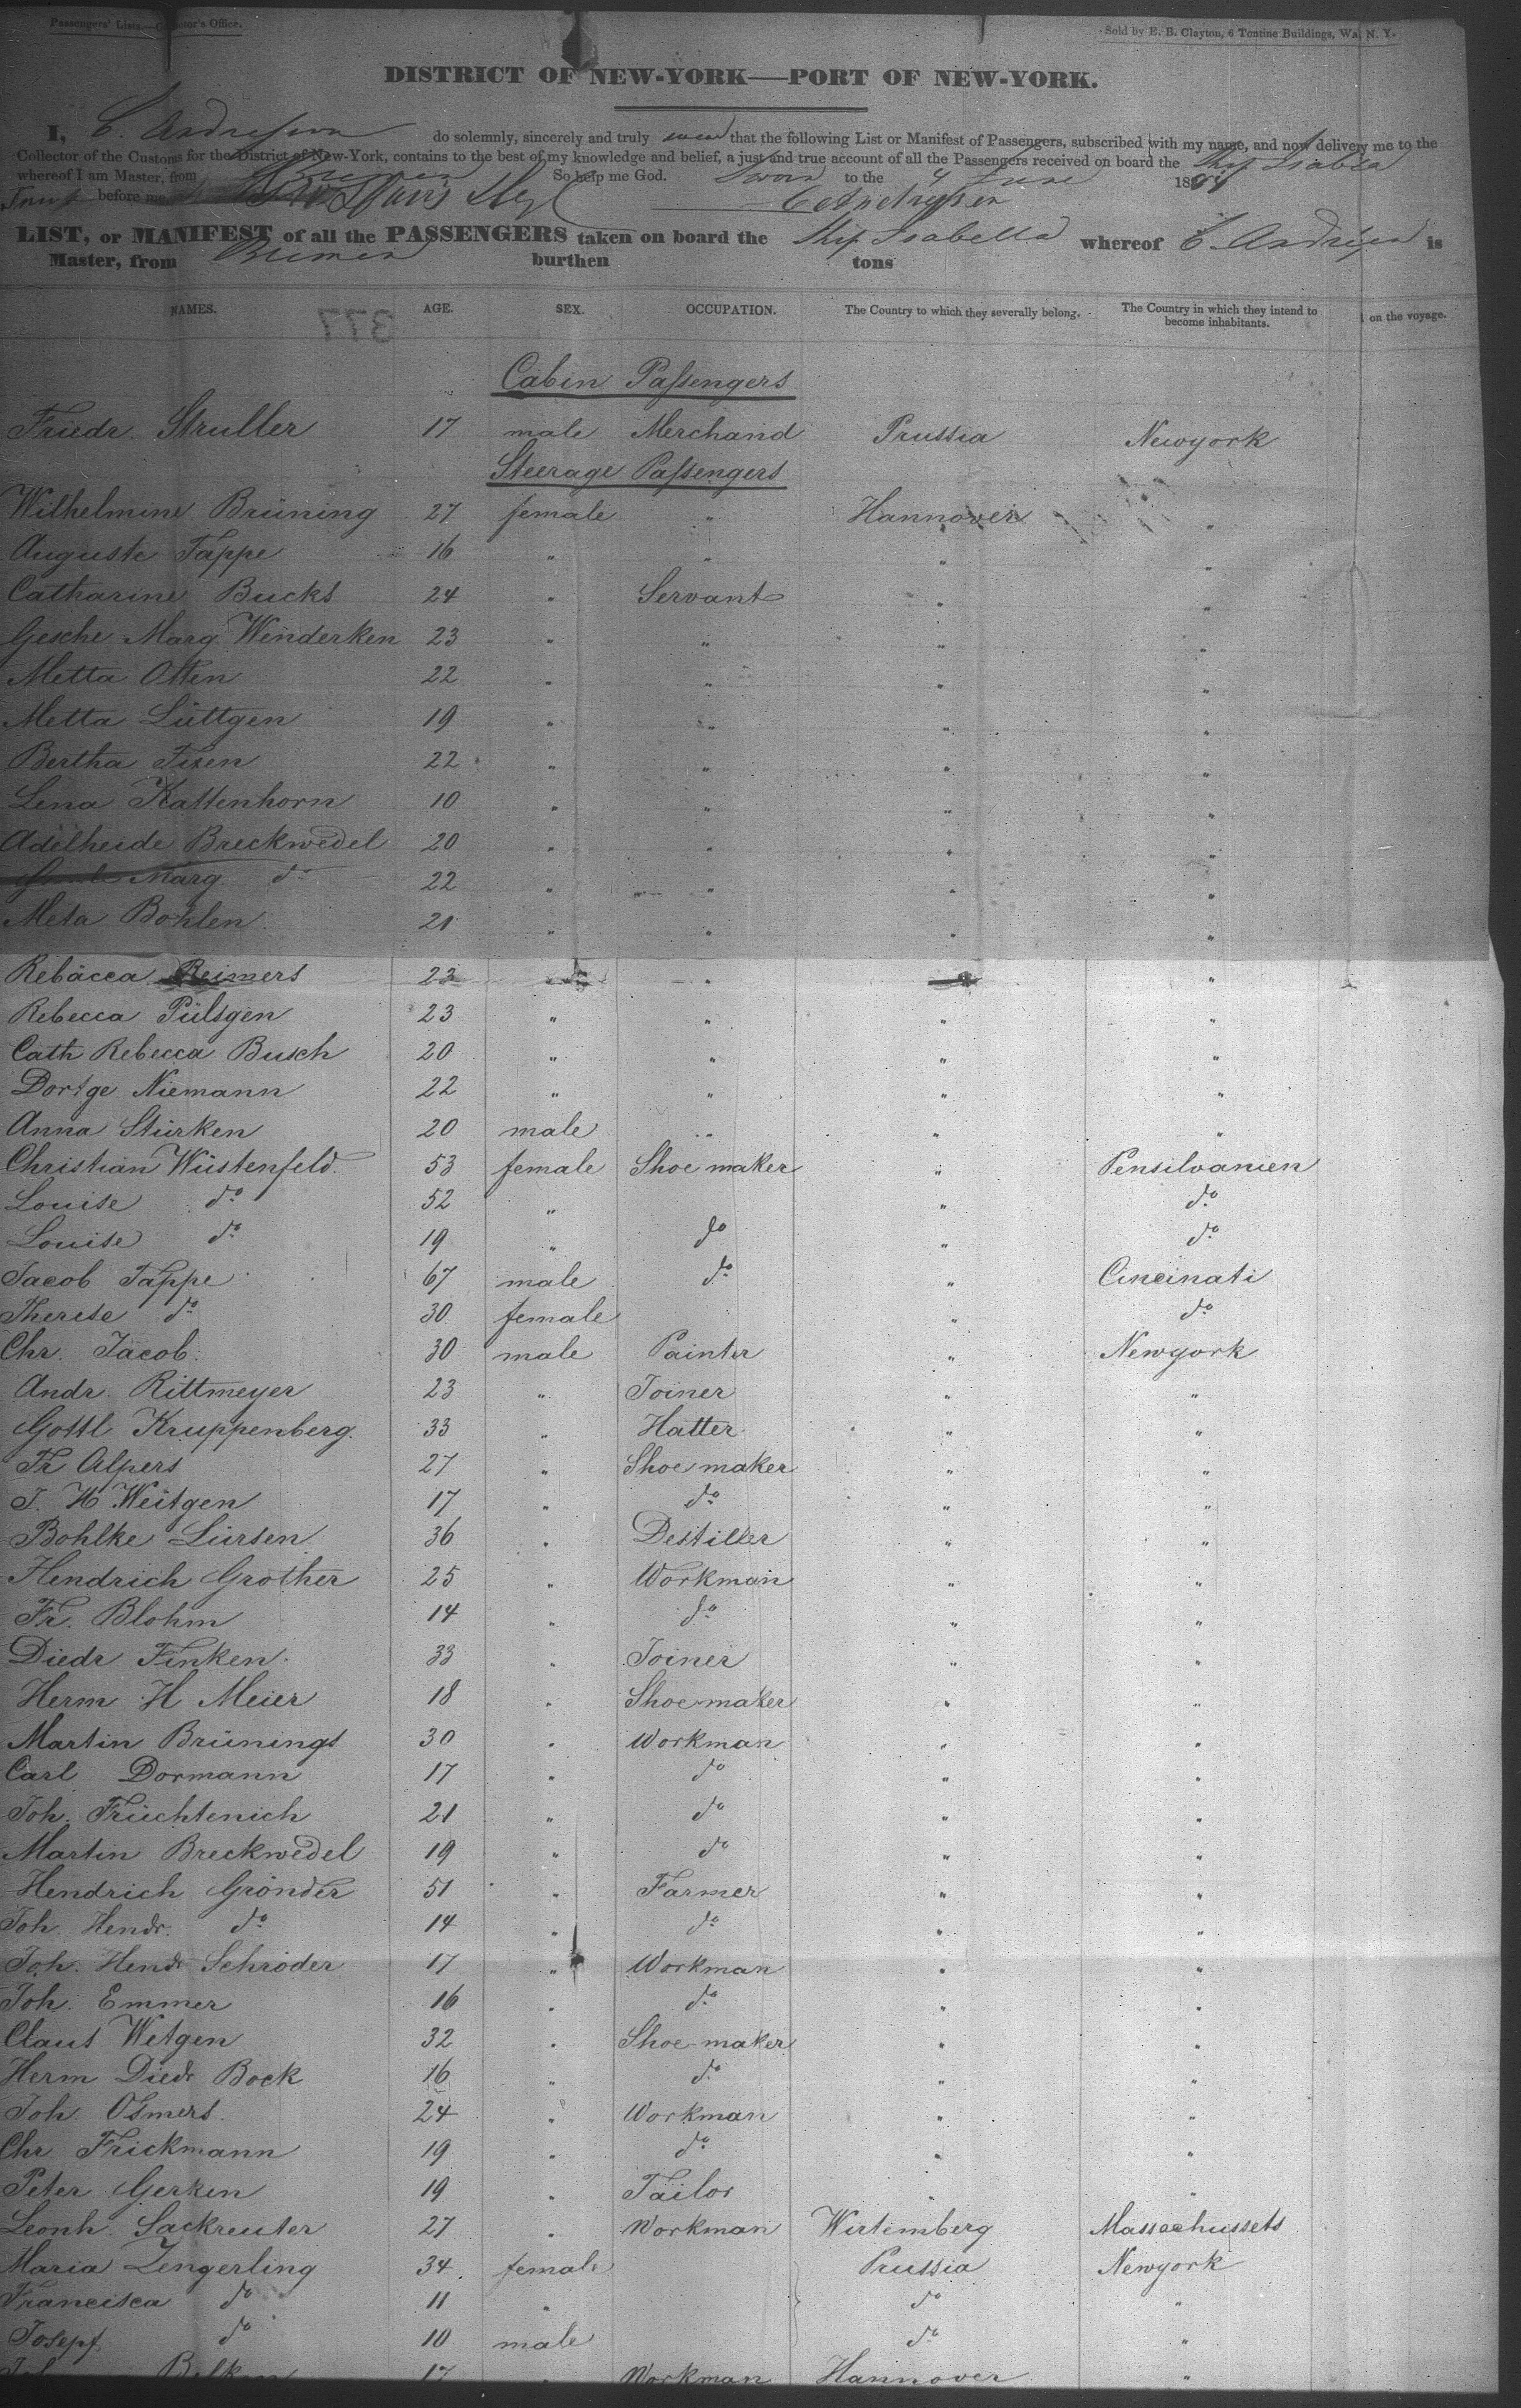 Passengers' Lists.—Collector's Office.
Sold by E. B. Clayton, 6 Tontine Buildings, Wal N. Y.
DISTRICT OF NEW-YORK—PORT OF NEW-YORK.
I, C. Andressen do solemnly, sincerely and truly swear that the following List or Manifest of Passengers, subscribed with my name, and now deliver me to the
Collector of the Customs for the District of New-York, contains to the best of my knowledge and belief, a just and true account of all the Passengers received on board the Ship Isabella
whereof I am Master, from Bremen So help me God. Sworn to the 4 June 18
before me C Andressen
LIST, or MANIFEST of all the PASSENGERS taken on board the Ship Isabella whereof C. Andresen is
Master, from Bremen burthen tons
NAMES. AGE. SEX. OCCUPATION. The Country to which they severally belong. The Country in which they intend to become inhabitants. on the voyage.
377
Cabin Passengers
Friedr. Struller 17 male Merchand Prussia Newyork
Steerage Passengers
Wilhelmine Brüning 27 female " Hannover "
Auguste Tappe 16 " " " "
Catharine Bucks 24 " Servant " "
Gesche Marg. Winderken 23 " " " "
Metta Otten 22 " " " "
Metta Lüttgen 19 " " " "
Bertha Fisen 22 " " " "
Lena Kattenhorn 10 " " " "
Adelheide Breckwedel 20 " " " "
Marg. do 22 " " " "
Meta Bohlen 21 " " " "
Rebäcca Reimers 23 " " " "
Rebecca Pülsgen 23 " " " "
Cath Rebecca Busch 20 " " " "
Dortge Niemann 22 " " " "
Anna Stürken 20 male " " "
Christian Wüstenfeld 53 female Shoe maker " Pensilvanien
Louise do 52 " " do
Louise do 19 " do " do
Jacob Tappe 67 male do " Cincinati
Therese do 30 female " do
Chr. Jacob. 30 male Painter " Newyork
Andr. Rittmeyer 23 " Joiner " "
Gottl Kruppenberg. 33 " Hatter " "
Fr Alpers 27 " Shoe maker " "
J. H Weitgen 17 " do " "
Bohlke Lürsen 36 " Destiller " "
Hendrich Grother 25 " Workman " "
Fr. Blohm 14 " do " "
Diedr Finken. 33 " Joiner " "
Herm H Meier 18 " Shoe maker " "
Martin Brünings 30 " Workman " "
Carl Dormann 17 " do " "
Joh. Früchtenich 21 " do " "
Martin Breckwedel 19 " do " "
Hendrich Gronder 51 " Farmer " "
Joh. Hendr. do 14 " do " "
Joh. Hendr Schröder 17 " Workman " "
Joh. Emmer 16 " do " "
Claus Wetgen 32 " Shoe-maker " "
Herm Diedr Bock 16 " do " "
Joh. Osmers. 24 " Workman " "
Chr Frickmann 19 " do " "
Peter Gerken 19 " Tailor " "
Leonh. Sackreuter 27 " Workman Wirtemberg Massachussets
Maria Zengerling 34. female Prussia Newyork
Francisca do 11 " do "
Josepf do 10 male do "
17 " Workman Hannover "